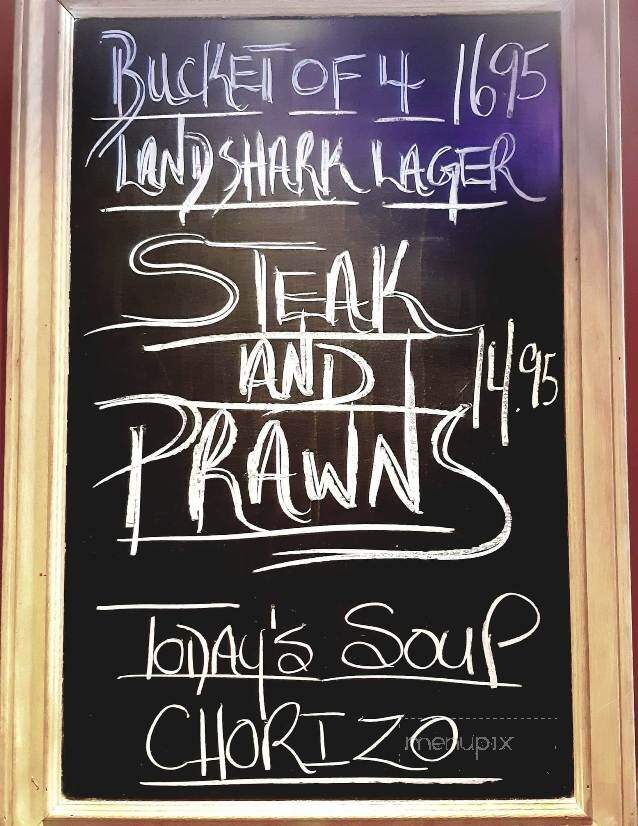 BUCKET OF 4 1695
LANDSHARK LAGER
STEAK
AND 14.95
PRAWNS
TODAY'S SOUP
CHORIZO
menupix